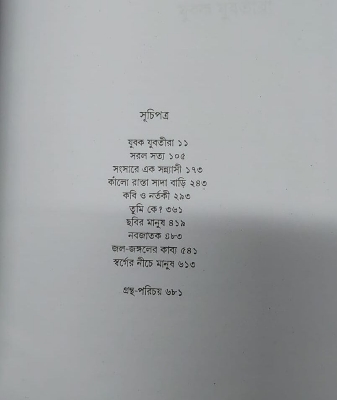 সূচিপত্র
যুবক যুবতীরা ১১
সরল সত্য ১০৫
সংসারে এক সন্ন্যাসী ১৭৩
কালো রাস্তা সাদা বাড়ি ২৪৩
কবি ও নর্তকী ২৯৩
তুমি কে? ৩৬১
ছবির মানুষ ৪১৯
নবজাতক ৪৮৩
জল-জঙ্গলের কাব্য ৫৪১
স্বর্গের নীচে মানুষ ৬১৩
গ্রন্থ-পরিচয় ৬৮১